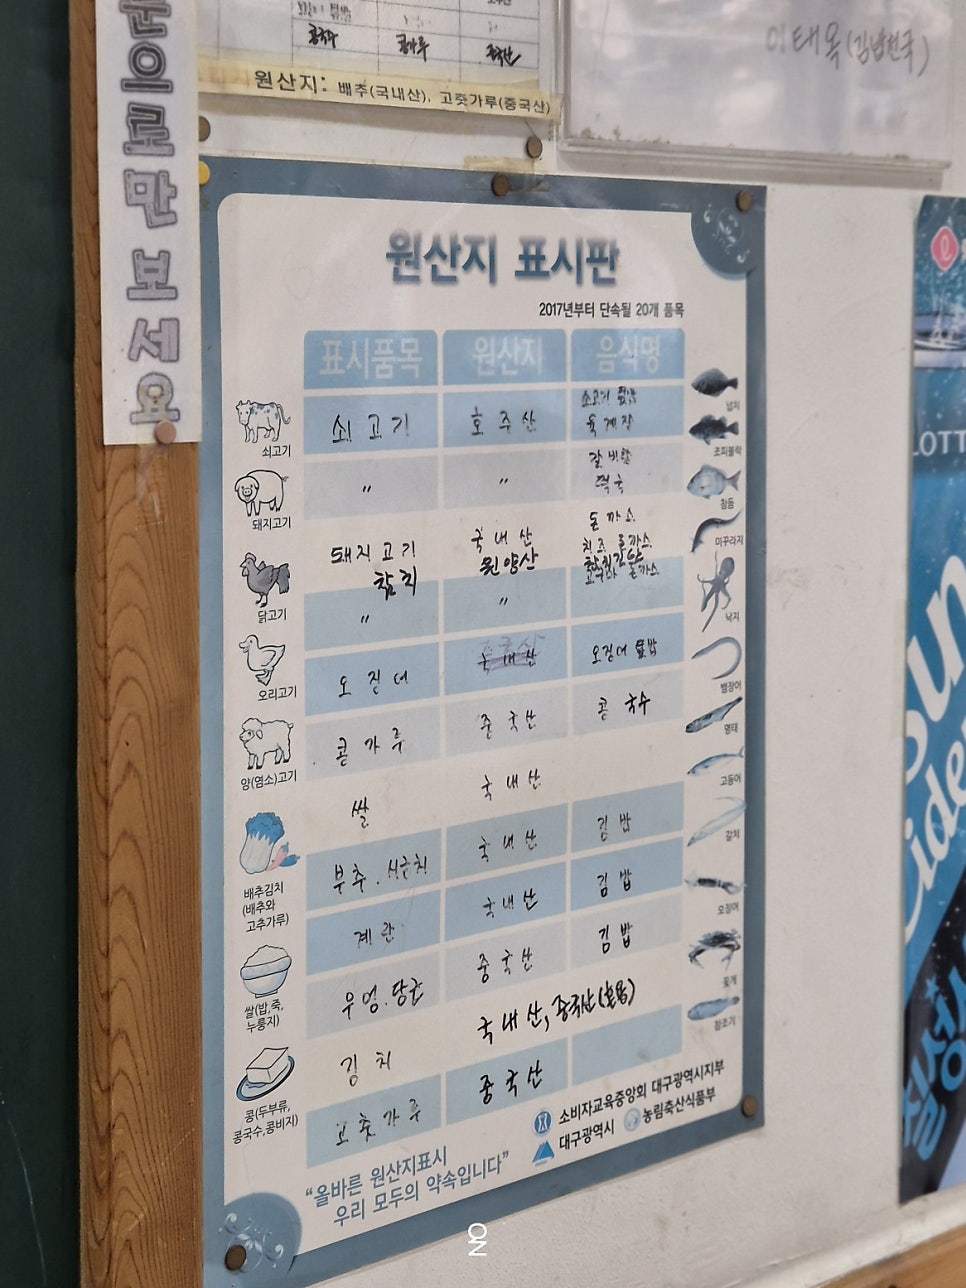 으로만 보세요
콩국수 콩가루 중국산
원산지: 배추(국내산), 고춧가루(중국산)
이태옥(김밥천국)
원산지 표시판
2017년부터 단속될 20개 품목
표시품목 원산지 음식명
쇠고기 호주산 쇠고기 덮밥
육계장
〃 〃 갈비탕
떡국
돼지고기 국내산 돈까스
치즈돈까스
참치 원양산 참치김밥
〃 〃 고구마 돈까스
오징어 국내산 오징어 덮밥
콩가루 중국산 콩국수
쌀 국내산
부추. 시금치 국내산 김밥
계란 국내산 김밥
우엉. 당근 중국산 김밥
김치 국내산, 중국산(혼용)
고춧가루 중국산
쇠고기
돼지고기
닭고기
오리고기
양(염소)고기
배추김치
(배추와
고추가루)
쌀(밥,죽,
누룽지)
콩(두부류,
콩국수,콩비지)
넙치
조피볼락
참돔
미꾸라지
낙지
뱀장어
명태
고등어
갈치
오징어
꽃게
참조기
소비자교육중앙회 대구광역시지부
대구광역시 농림축산식품부
“올바른 원산지표시
우리 모두의 약속입니다”
LOTT